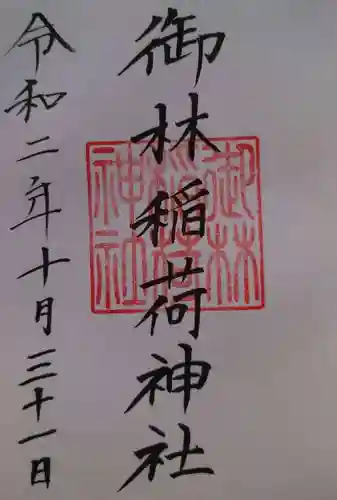 御林稲荷神社
令和二年十月三十一日
御林
稲荷
神社